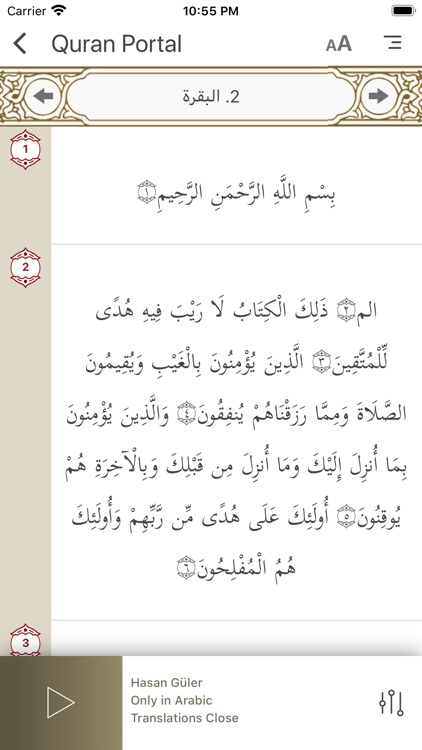 Carrier 10:55 PM
Quran Portal AA
2. البقرة
1
بِسْمِ اللَّهِ الرَّحْمَنِ الرَّحِيمِ ﴿١﴾
2
الم ﴿٢﴾ ذَلِكَ الْكِتَابُ لَا رَيْبَ فِيهِ هُدًى
لِّلْمُتَّقِينَ ﴿٣﴾ الَّذِينَ يُؤْمِنُونَ بِالْغَيْبِ وَيُقِيمُونَ
الصَّلَاةَ وَمِمَّا رَزَقْنَاهُمْ يُنفِقُونَ ﴿٤﴾ وَالَّذِينَ يُؤْمِنُونَ
بِمَا أُنزِلَ إِلَيْكَ وَمَا أُنزِلَ مِن قَبْلِكَ وَبِالْآخِرَةِ هُمْ
يُوقِنُونَ ﴿٥﴾ أُولَئِكَ عَلَى هُدًى مِّن رَّبِّهِمْ وَأُولَئِكَ
هُمُ الْمُفْلِحُونَ ﴿٦﴾
3
Hasan Güler
Only in Arabic
Translations Close